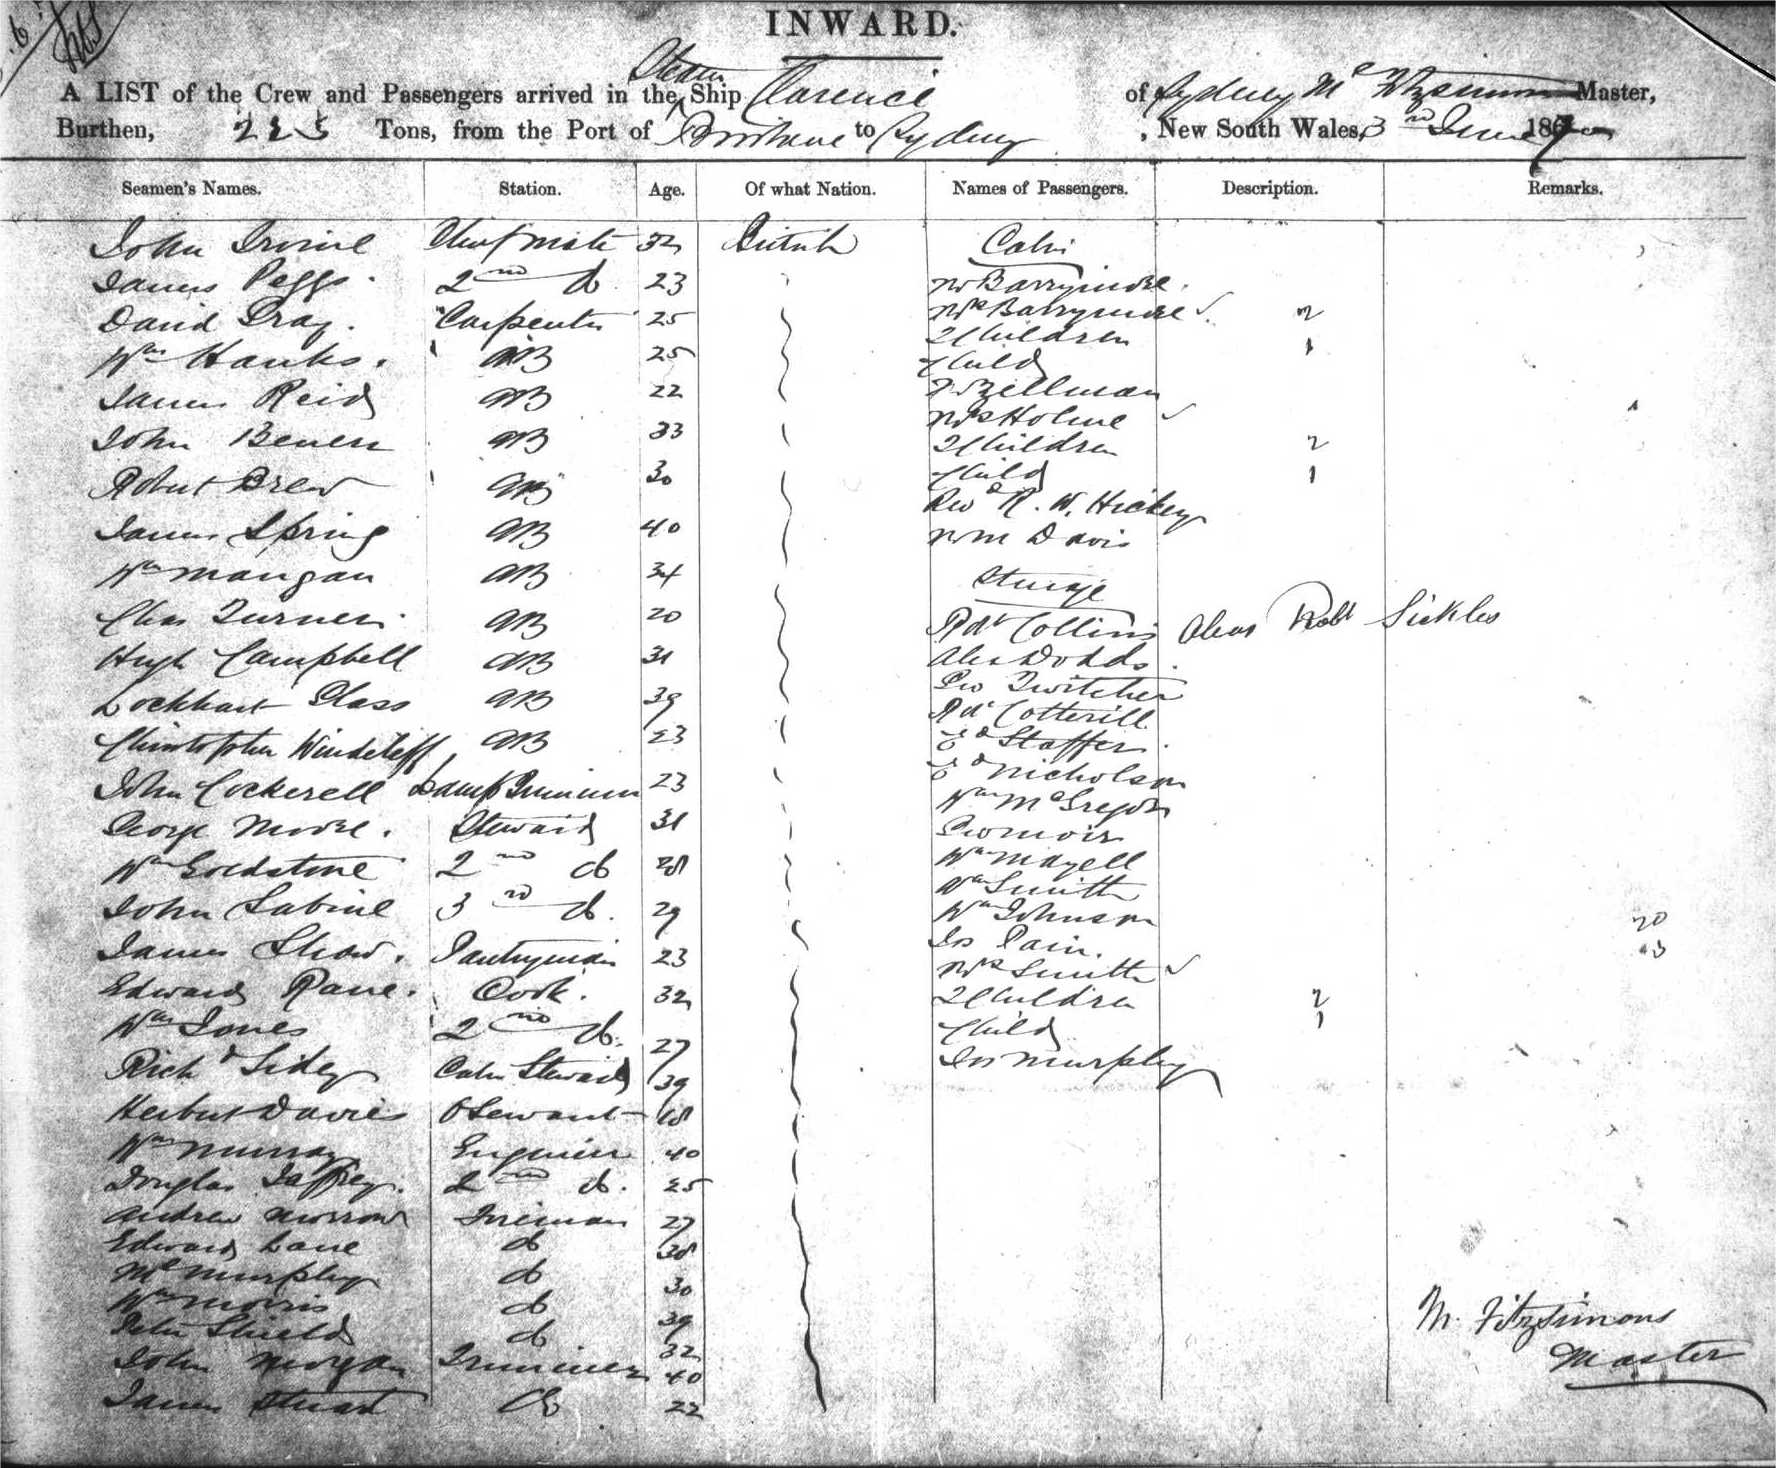 INWARD.
A LIST of the Crew and Passengers arrived in the Steam Ship Clarence of Sydney Mc Fitzsimons Master,
Burthen, 225 Tons, from the Port of Brisbane to Sydney, New South Wales, 3rd June 187
Seamen's Names. Station. Age. Of what Nation. Names of Passengers. Description. Remarks.
John Irvine Chief Mate 32 British Cabin
James Peggs. 2nd do 23 Mr Barrymore.
David Gray. Carpenter 25 Mrs Barrymore 2
2 Children
Wm Hanks. AB 25 Child 1
James Reid AB 22 Zillman
Mrs Holme
John AB 33 2 Children 2
Robert Brew AB 30 Child 1
Revd R. W. Hickey
James Spring AB 40 Davis
Wm Mangan AB 34 Steerage
Chas Turner AB 20 Rdt Collins Alias Robt Sickles
Hugh Campbell AB 31 Alex Dodds.
Geo Twitcher
Lockhart Glass AB 39 Rd Cotterill
Christopher AB 23 Ed Staffer
John Cockerell Lamp Trimmer 23 Ed Nicholson
Wm McGregor
George Moore. Steward 31 Geo Moir
Wm Goldstone 2nd do 28 Wm Mayell
Wm Smith
John Sabine 3rd do. 29 Wm Johnson 20
Jas Pain. 13
James Shaw. Pantryman 23 Mrs Smith
Edward Rane. Cook. 32 2 Children 2
Wm Jones 2nd do. 27 Child 1
Richd Sidey Cabin Steward 39 Jas Murphy
Herbert Davies Servant 18
Wm Murray Engineer 40
Douglas Jaffrey. 2nd do. 25
Andrew Morrow Fireman 27
Edward Lane do 38
Ml Murphy do 30
Wm Morris do 39 M. Fitzsimons
Peter Shields do 32 Master
John Morgan Trimmer 40
James Stuart do 22